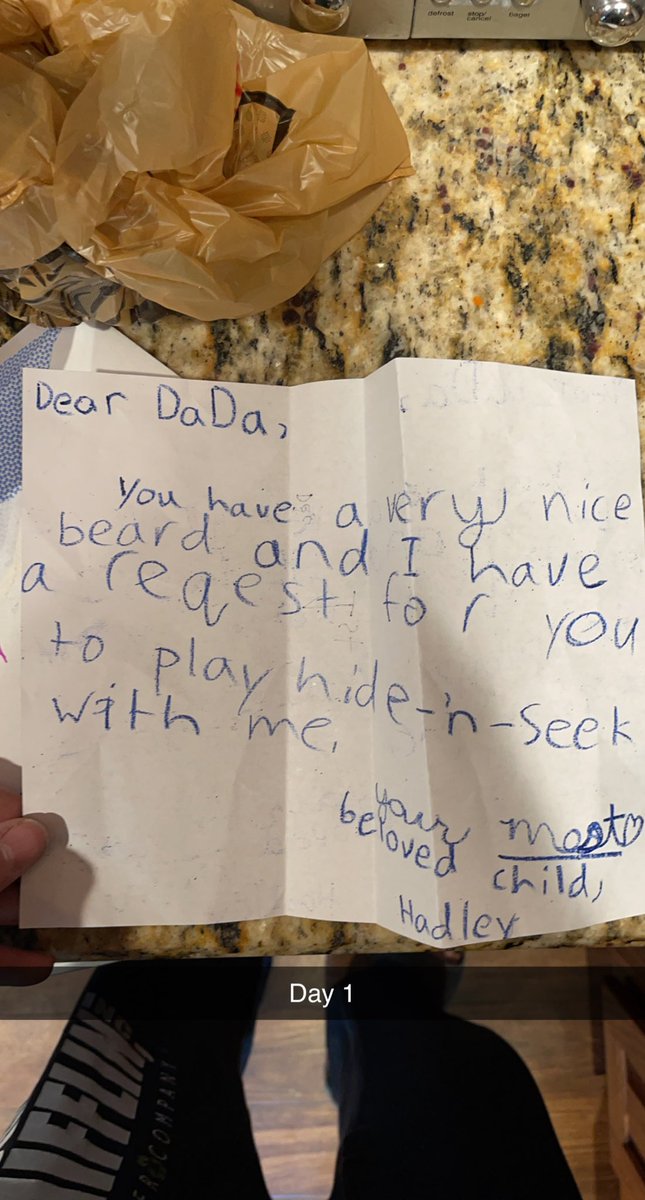 defrost stop/ cancel bagel
Dear DaDa,
You have a very nice
beard and I have
a reqest for you
to play hide-'n-seek
with me.
your most♡
beloved child,
Hadley
Day 1
COMPANY